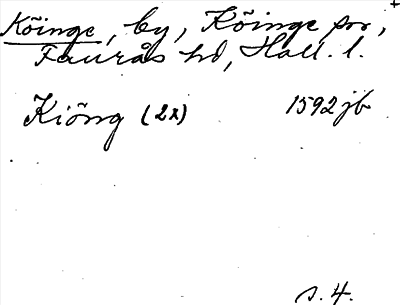 Köinge, by, Köinge sn,
Faurås hd, Hall. l.
Kiöng (2x) 1592 jb
s. 4.